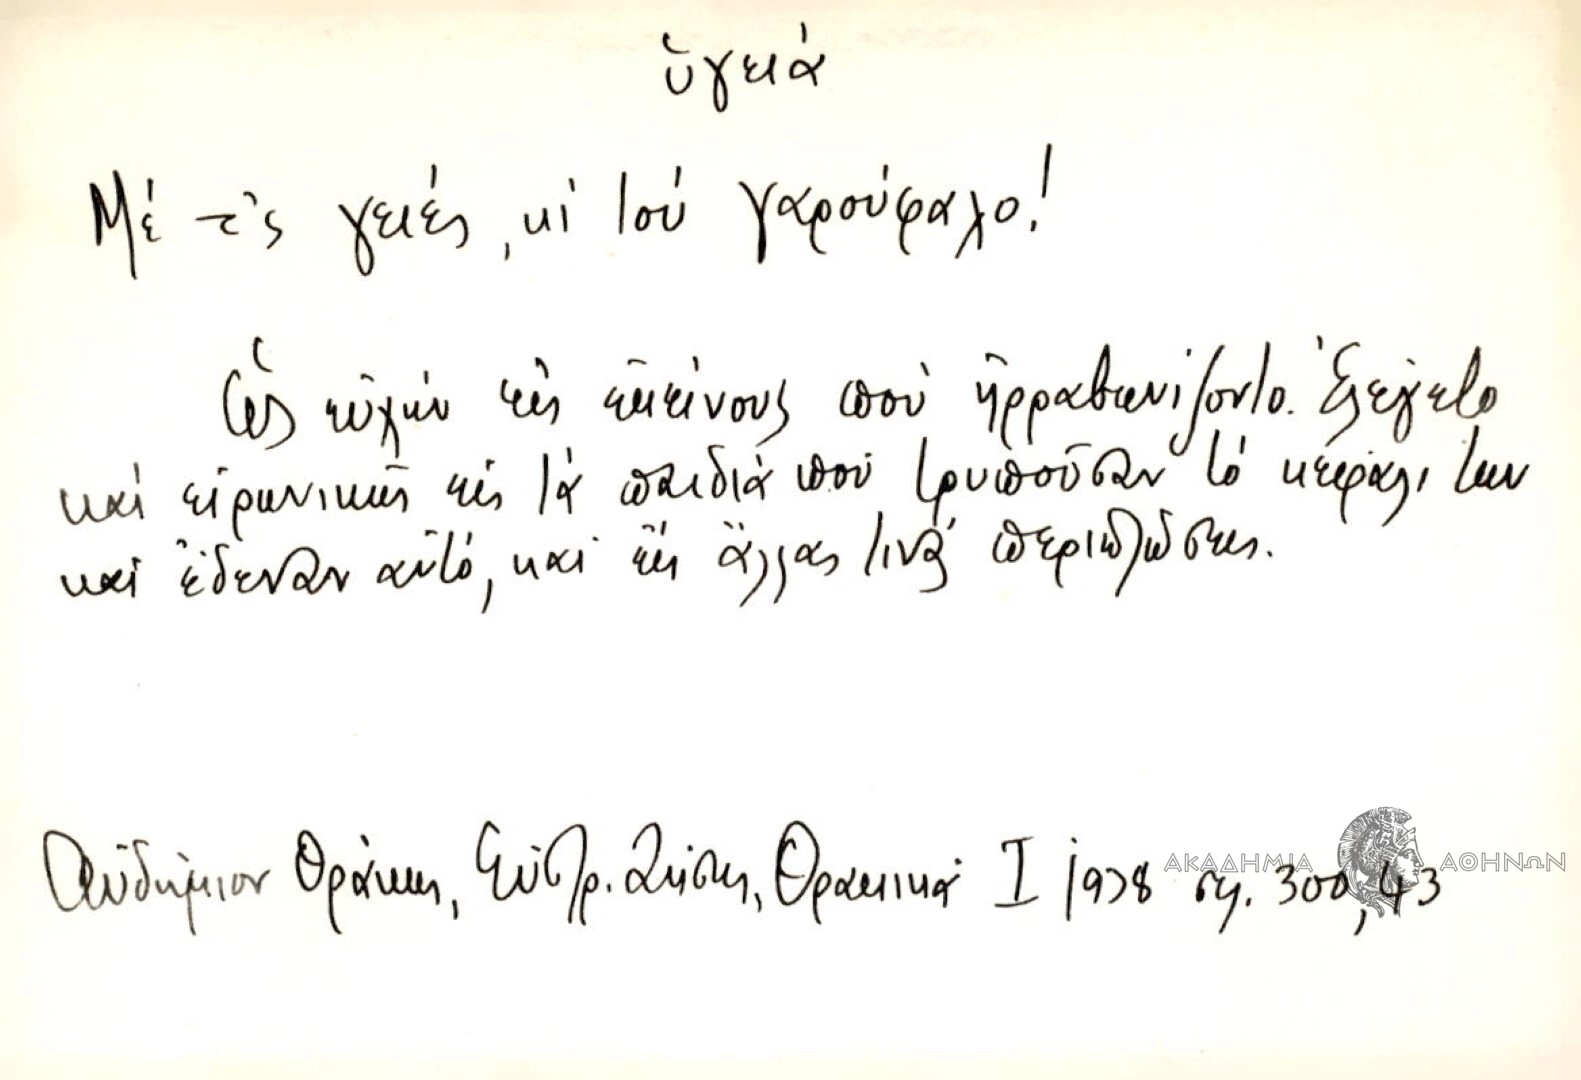 ὑγειά
Μέ τὶς γειές, κι τού γαρούφαλο!
Ὡς εὐχήν εἰς ἐκείνους πού ἠρραβωνίζοντο. Ἐλέγετο
καί εἰρωνικῶς εἰς τά παιδιά πού τρυποῦσαν τό κεφάλι των
καί ἔδεναν αὐτό, καί εἰς ἄλλας τινάς περιπτώσεις.
Αὐδήμιον Θράκης, Εὐστρ. Ζήσης, Θρακικά Ι 1938 σελ. 300, 43
ΑΚΑΔΗΜΙΑ ΑΘΗΝΩΝ